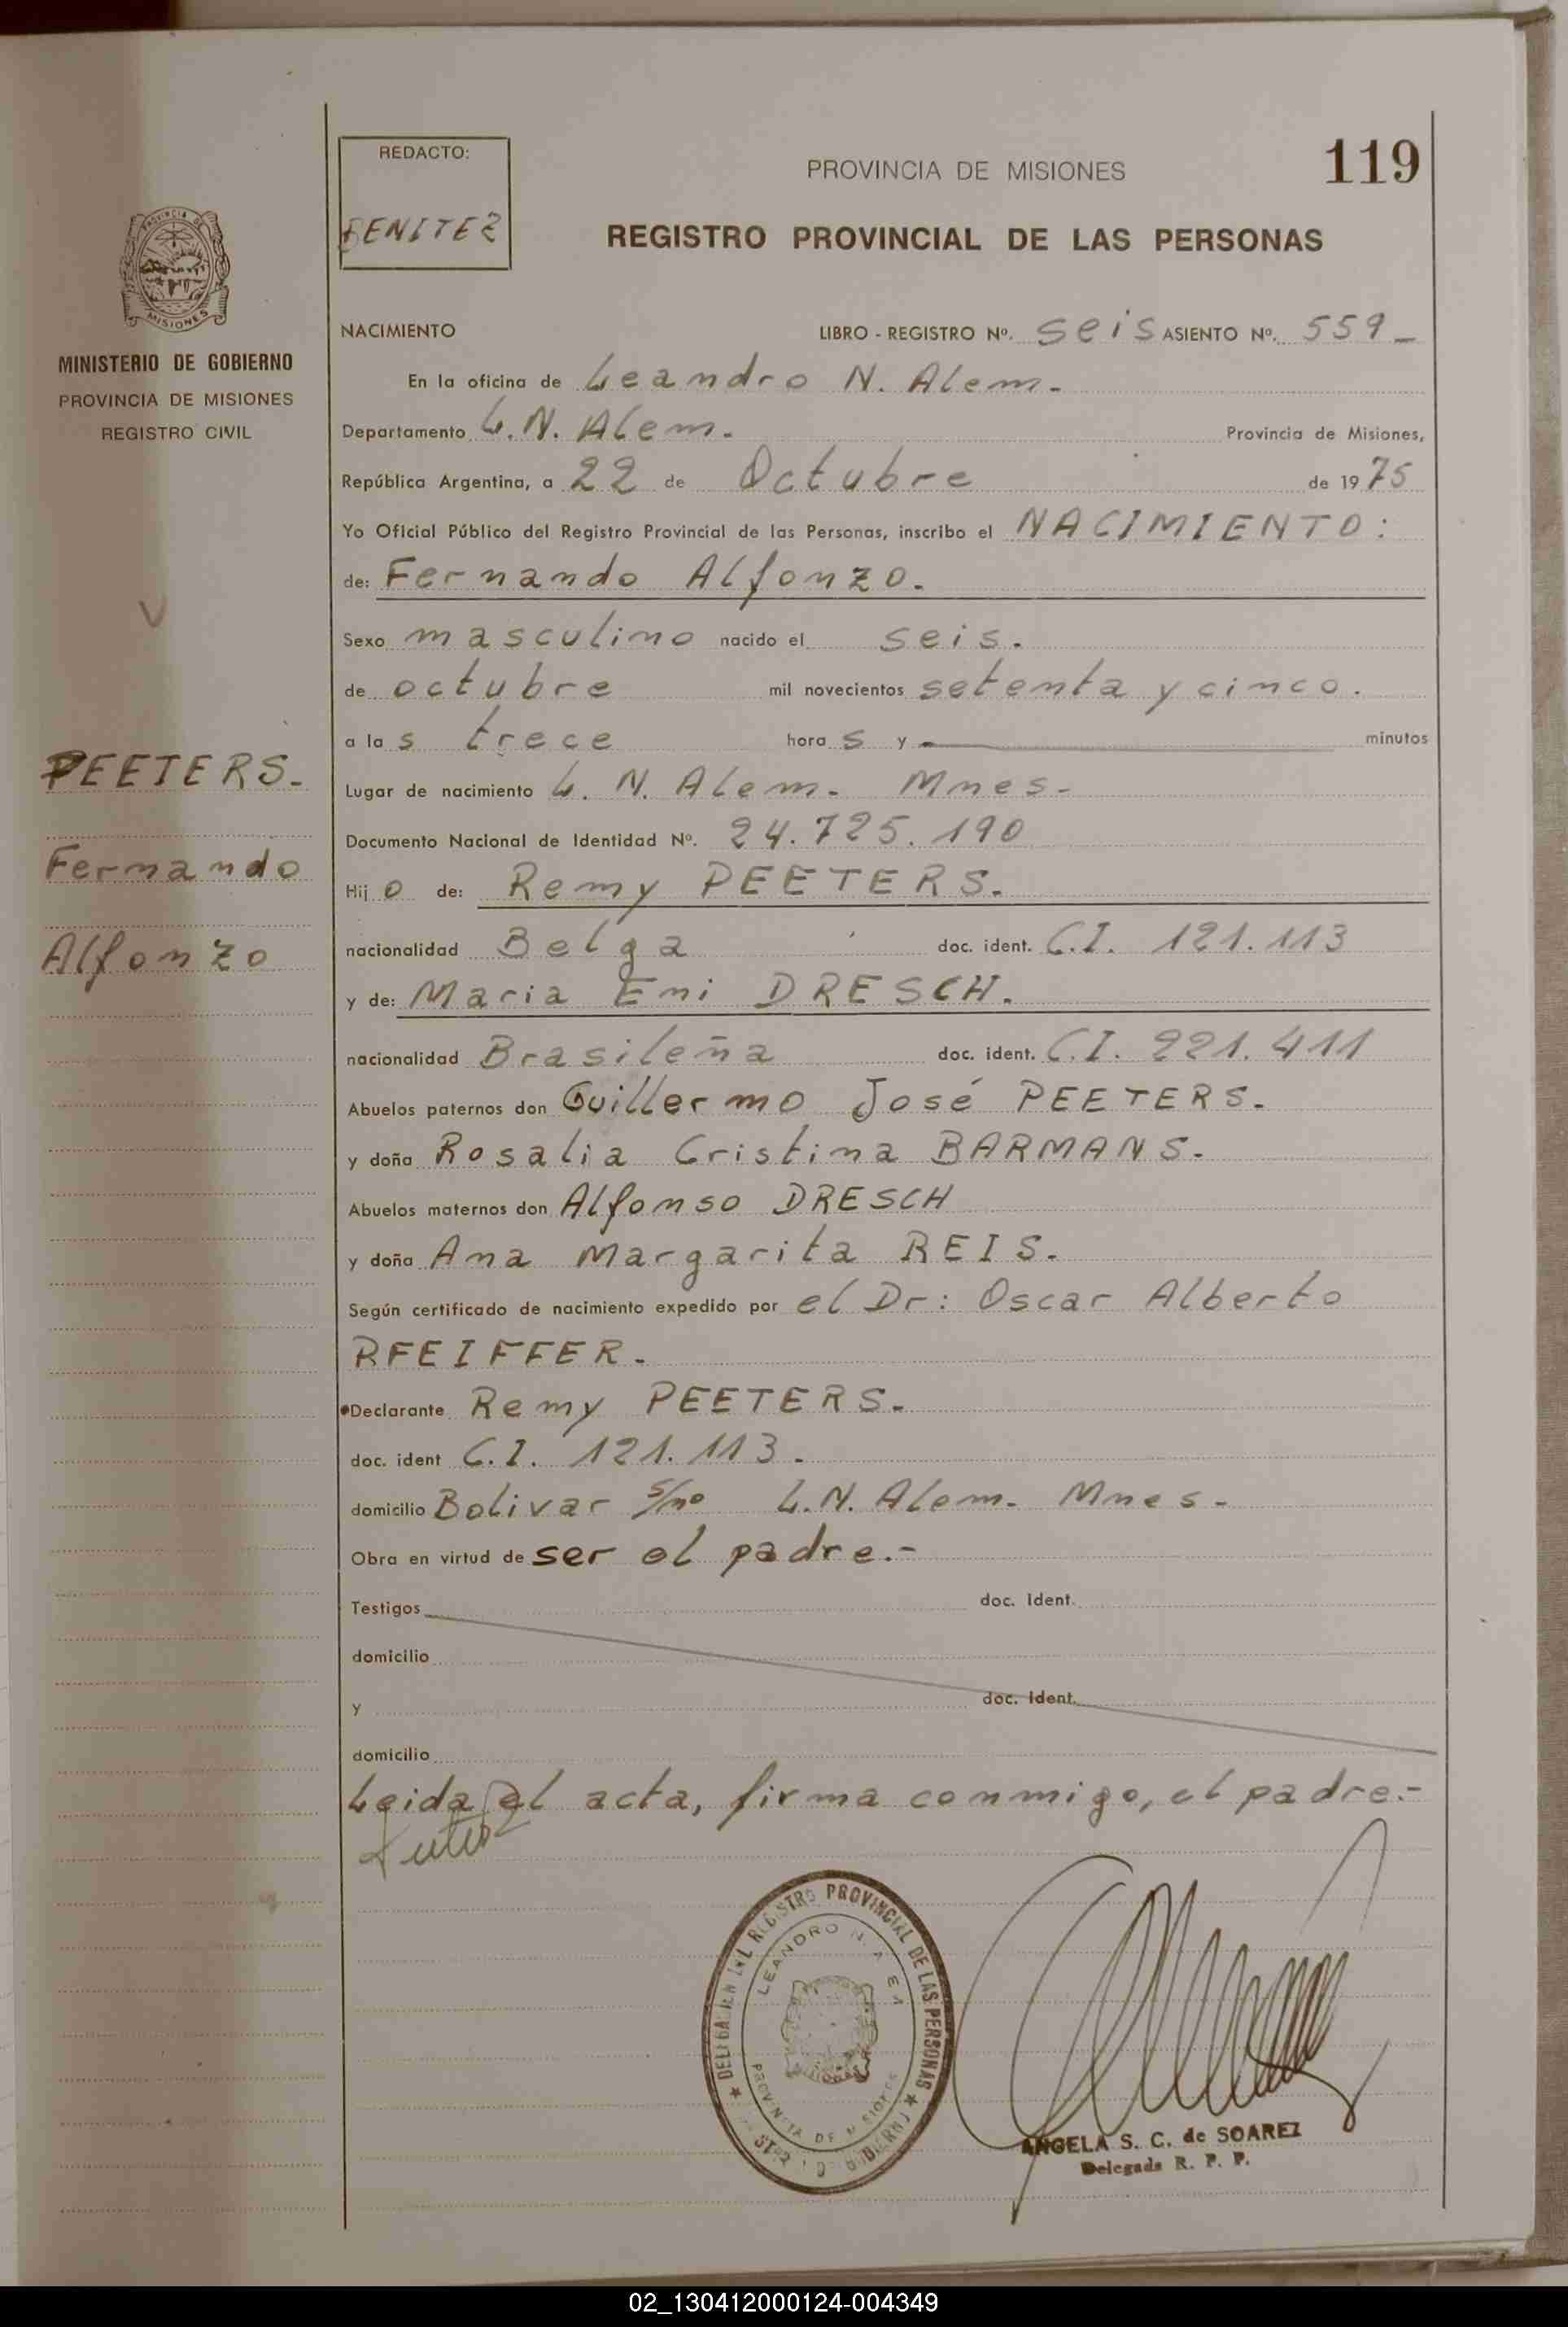 REDACTO:
BENITEZ
PROVINCIA DE MISIONES
119
REGISTRO PROVINCIAL DE LAS PERSONAS
PROVINCIA DE
MISIONES
MINISTERIO DE GOBIERNO
PROVINCIA DE MISIONES
REGISTRO CIVIL
PEETERS.
Fernando
Alfonzo
NACIMIENTO LIBRO - REGISTRO Nº. seis ASIENTO Nº. 559_
En la oficina de Leandro N. Alem.
Departamento L. N. Alem. Provincia de Misiones,
República Argentina, a 22 de Octubre de 1975
Yo Oficial Público del Registro Provincial de las Personas, inscribo el NACIMIENTO:
de: Fernando Alfonzo.
Sexo masculino nacido el seis.
de octubre mil novecientos setenta y cinco.
a las trece horas y — minutos
Lugar de nacimiento L. N. Alem. Mnes-
Documento Nacional de Identidad Nº. 24.725.190
Hijo de: Remy PEETERS.
nacionalidad Belga doc. ident. C.I. 121.113
y de: Maria Eni DRESCH.
nacionalidad Brasileña doc. ident. C.I. 221.411
Abuelos paternos don Guillermo José PEETERS.
y doña Rosalia Cristina BARMANS.
Abuelos maternos don Alfonso DRESCH
y doña Ana Margarita REIS.
Según certificado de nacimiento expedido por el Dr: Oscar Alberto
PFEIFFER.
Declarante Remy PEETERS.
doc. ident C.I. 121.113.
domicilio Bolivar s/nº L.N. Alem. Mnes-
Obra en virtud de ser el padre.-
Testigos doc. Ident.
domicilio
y doc. Ident.
domicilio
Leida el acta, firma conmigo, el padre.-
DELEGACION DEL REGISTRO PROVINCIAL DE LAS PERSONAS
LEANDRO N. ALEM
PROVINCIA DE MISIONES
ANGELA S. C. de SOAREZ
Delegada R. P. P.
02_130412000124-004349